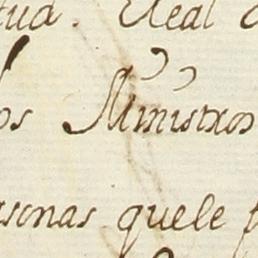 tud. Real
os Ministros
rsonas quele p